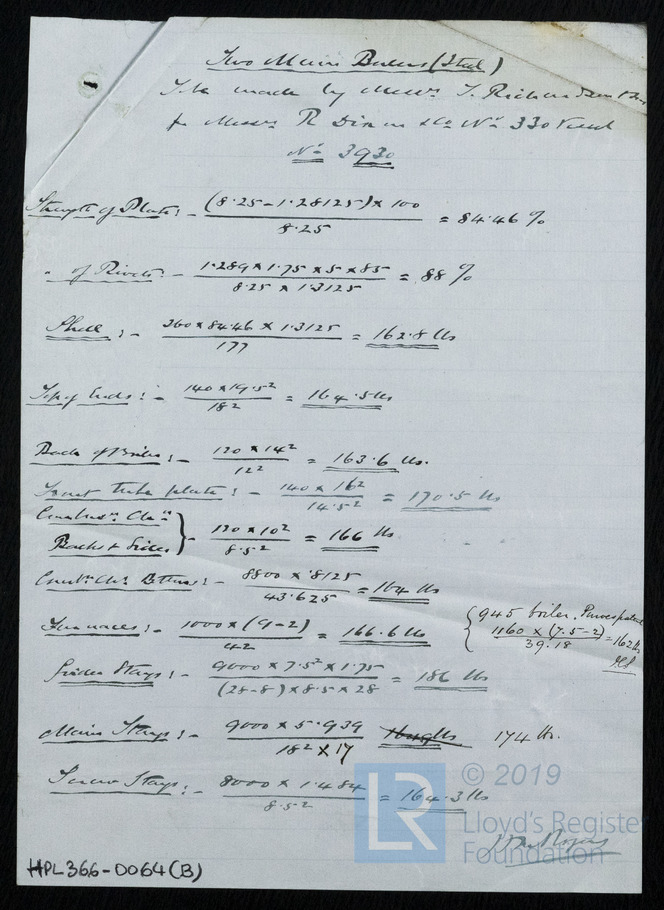 Two Main Boilers (Steel)
To be made by Messrs T. Richardson & Sons
for Messrs R Dixon & Co No 330 Vessel
No 3930
Strength of Plate :- (8.25-1.28125) x 100 / 8.25 = 84.46 %
" of Rivets - 1.289 x 1.75 x 5 x 85 / 8.25 x 1.3125 = 88 %
Shell :- 260 x 84.46 x 1.3125 / 177 = 162.8 lbs
Top of Ends :- 140 x 19.5² / 18² = 164.5 lbs
Back of Boiler :- 120 x 14² / 12² = 163.6 lbs.
Front tube plate :- 140 x 16² / 14.5² = 170.5 lbs
Combusn Chrs
Backs & Sides } - 120 x 10² / 8.5² = 166 lbs
Combn Chr Bottoms :- 8800 x .8125 / 43.625 = 164 lbs
Furnaces :- 1000 x (9-2) / 42 = 166.6 lbs
{ 945 boiler. Purves patent
1160 x (7.5-2) / 39.18 = 162 lbs
Girder Stays :- 9000 x 7.5² x 1.75 / (28-8) x 8.5 x 28 = 186 lbs
Main Stays :- 9000 x 5.939 / 18² x 17 174 lbs.
Screw Stays :- 8000 x 1.484 / 8.5² = 164.3 lbs
© 2019
LR
Lloyd's Register
Foundation
HPL366-0064(B)